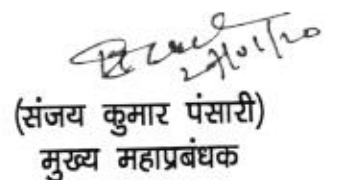 27/01/20
(संजय कुमार पंसारी)
मुख्य महाप्रबंधक